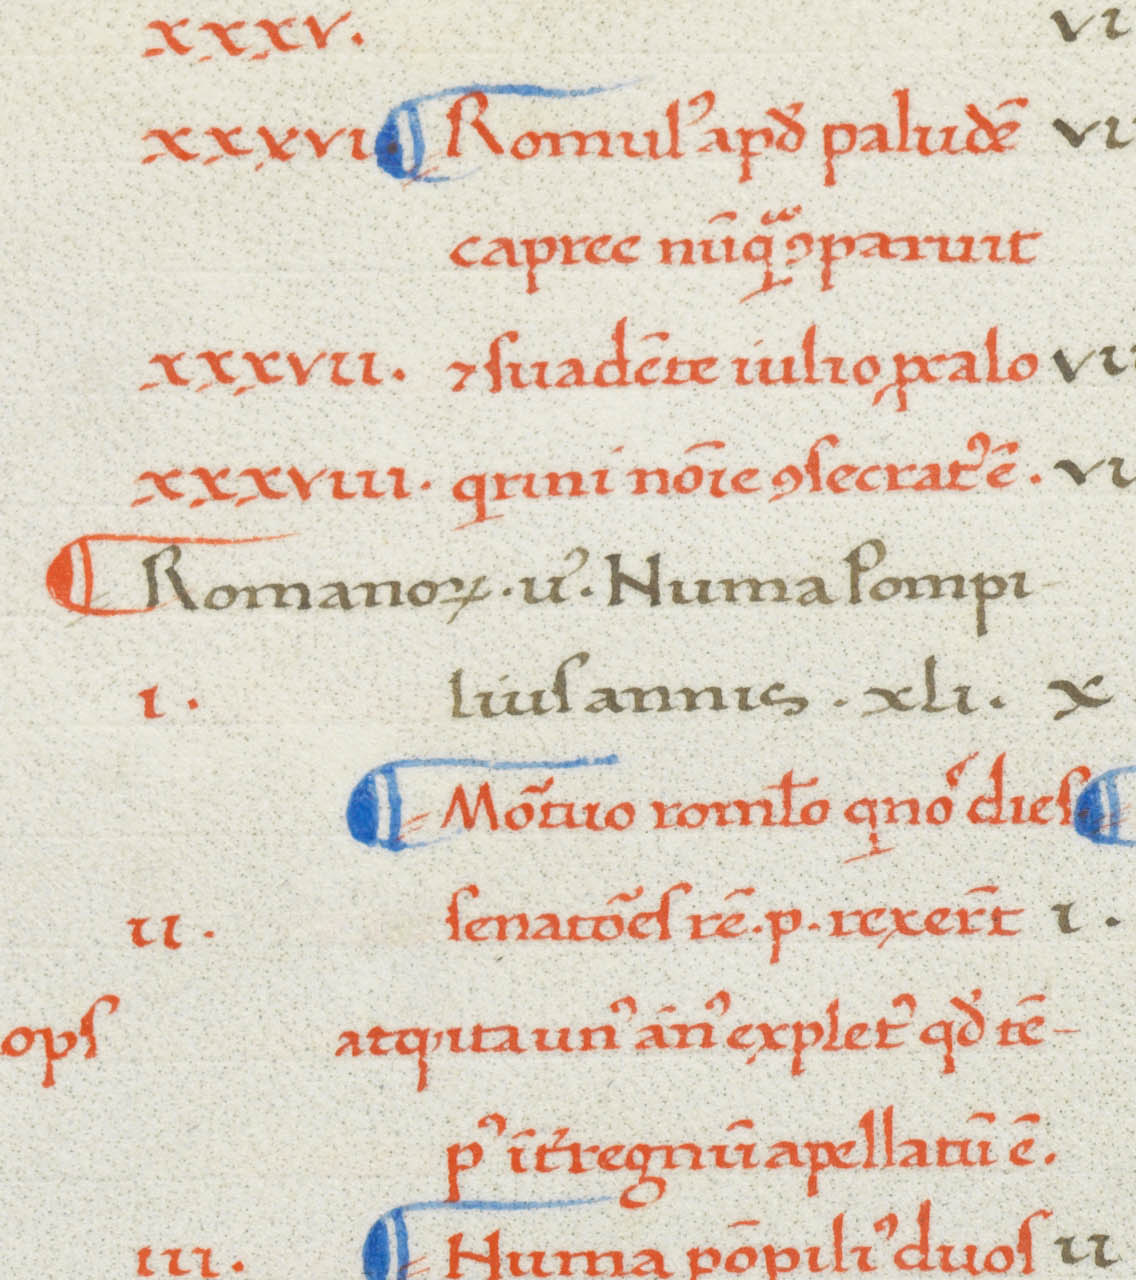 xxxv. vi
xxxvi Romulꝰ apđ paludē vi
capree nūqᷓ ꝯparuit
xxxvii. ⁊ ſuadēte iulio ꝓcalo vii
xxxviii. qrini nōıe ꝯſecratꝰ ē. vi
Romanoꝝ. uꝰ. Numa Pompi
i. liuſ annis . xli. x
Mōtuo romło qno dieſ
ii. ſenatōeſ rē. p. rexer̄t i.
opſ atq ita unꝰ anꝰ expletꝰ qđ tē-
pꝰ īt̄regnū apellatū ē.
iii. Numa pōpiliꝰ duoſ ii